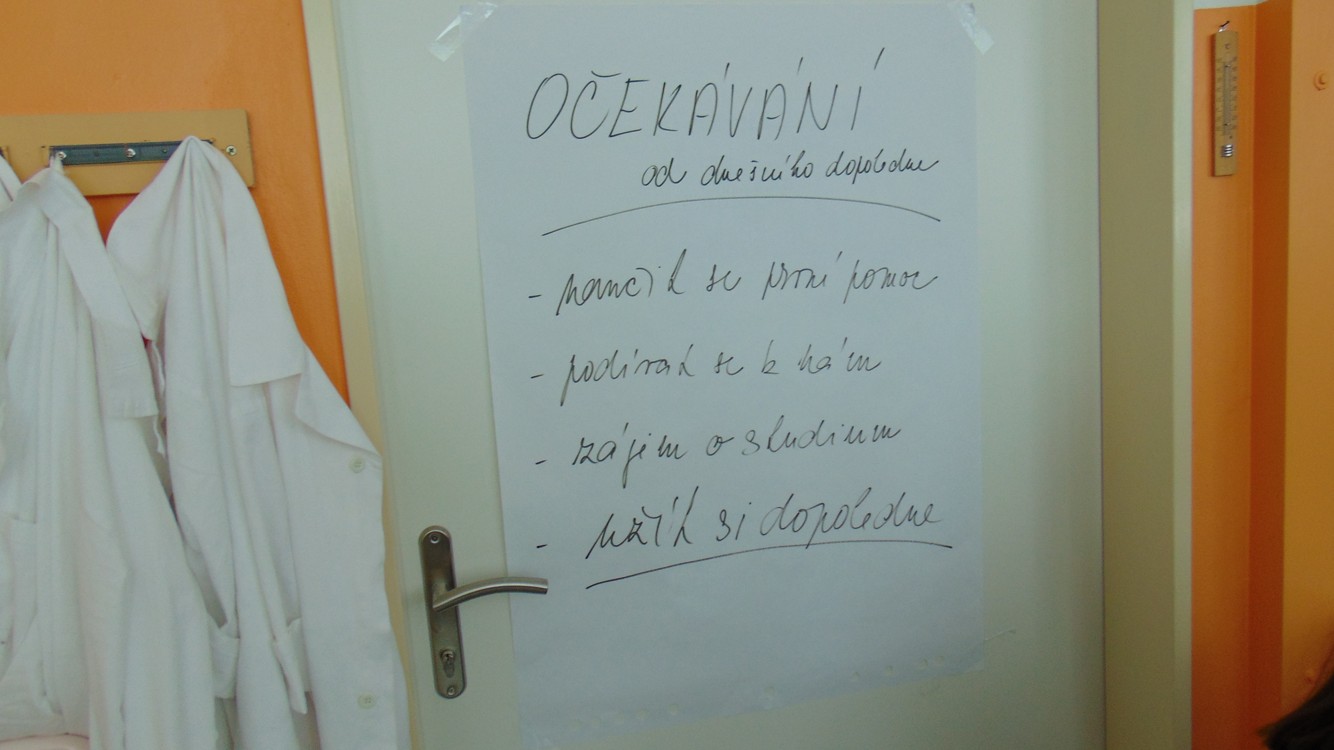 OČEKÁVÁNÍ
od dnešního dopoledne
- naučit se první pomoc
- podívat se k nám
- zájem o studium
- užít si dopoledne